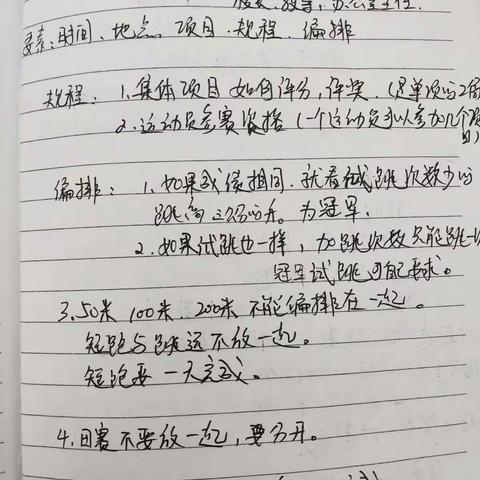 要素:时间、地点、项目、规程、编排
规程: 1.集体项目如何评分,评奖.(是单项的2倍
2.运动员参赛资格(一个运动员可以参加几个项目)
编排: 1.如果成绩相同.就看试跳次数少的
跳高 为冠军.
2.如果试跳也一样,加跳次数只能跳一次
冠军试跳可自己要求。
3.50米 100米 200米 不能编排在一起。
短跑与跳远不放一起。
短跑要一天完成。
4.田赛不要放一起,要分开。